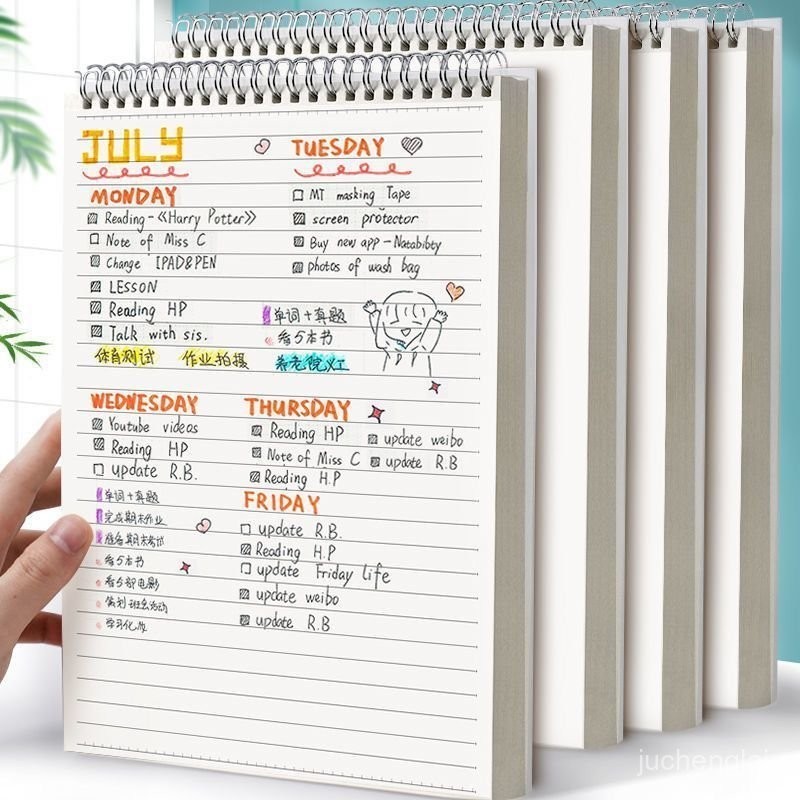 JULY
MONDAY
Reading-《Harry Potter》
Note of Miss C
Change IPAD&PEN
LESSON
Reading HP
Talk with sis.
体育测试 作业拍摄 养老院义工
TUESDAY
MT masking Tape
screen protector
Buy new app-Notabibty
photos of wash bag
单词+真题
看5本书
WEDNESDAY
Youtube videos
Reading HP
update R.B.
单词+真题
完成期末作业
准备期末考试
看5本书
看5部电影
策划班会活动
学习化妆
THURSDAY
Reading HP
Note of Miss C
Reading H.P
update weibo
update R.B
FRIDAY
update R.B.
Reading H.P
update Friday life
update weibo
update R.B